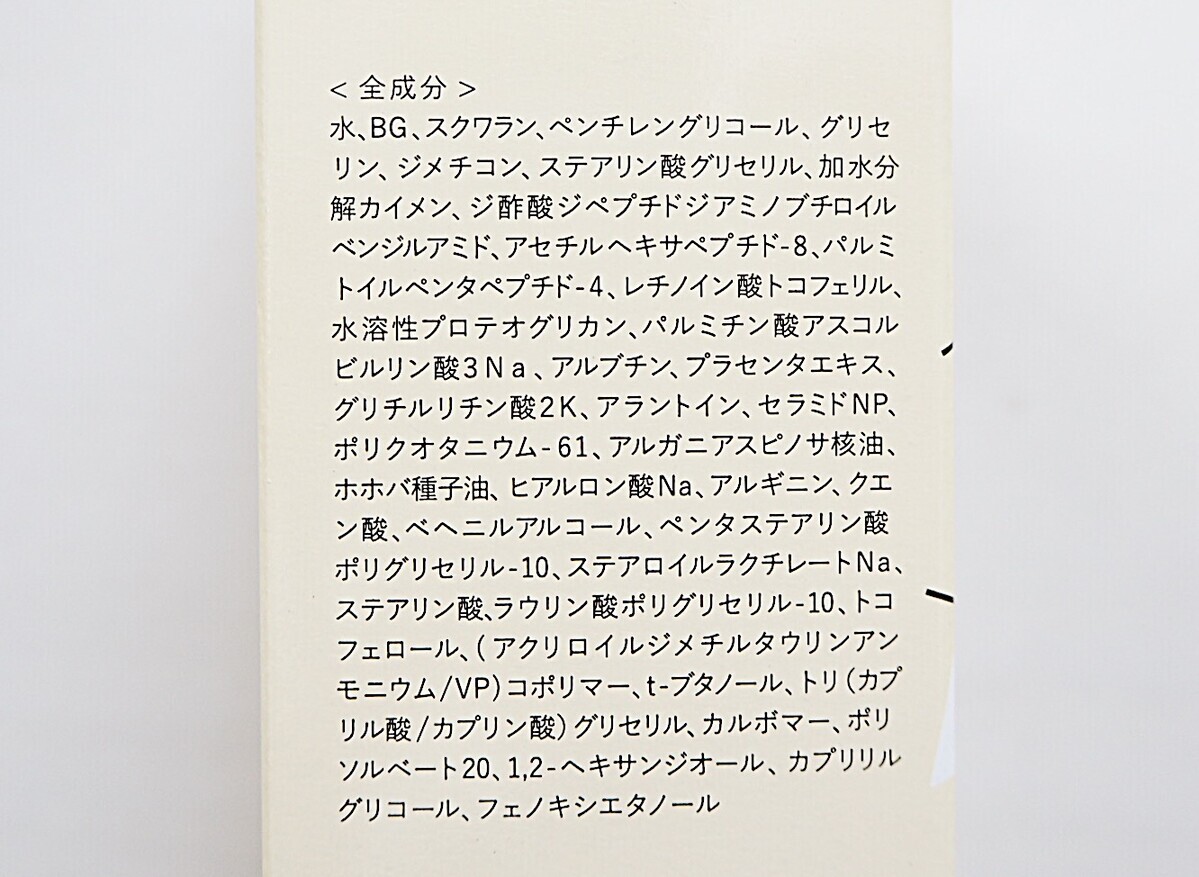 < 全成分 >
水、BG、スクワラン、ペンチレングリコール、グリセ
リン、ジメチコン、ステアリン酸グリセリル、加水分
解カイメン、ジ酢酸ジペプチドジアミノブチロイル
ベンジルアミド、アセチルヘキサペプチド-8、パルミ
トイルペンタペプチド-4、レチノイン酸トコフェリル、
水溶性プロテオグリカン、パルミチン酸アスコル
ビルリン酸3Na、アルブチン、プラセンタエキス、
グリチルリチン酸2K、アラントイン、セラミドNP、
ポリクオタニウム-61、アルガニアスピノサ核油、
ホホバ種子油、ヒアルロン酸Na、アルギニン、クエ
ン酸、ベヘニルアルコール、ペンタステアリン酸
ポリグリセリル-10、ステアロイルラクチレートNa、
ステアリン酸、ラウリン酸ポリグリセリル-10、トコ
フェロール、(アクリロイルジメチルタウリンアン
モニウム/VP)コポリマー、t-ブタノール、トリ(カプ
リル酸/カプリン酸)グリセリル、カルボマー、ポリ
ソルベート20、1,2-ヘキサンジオール、カプリリル
グリコール、フェノキシエタノール